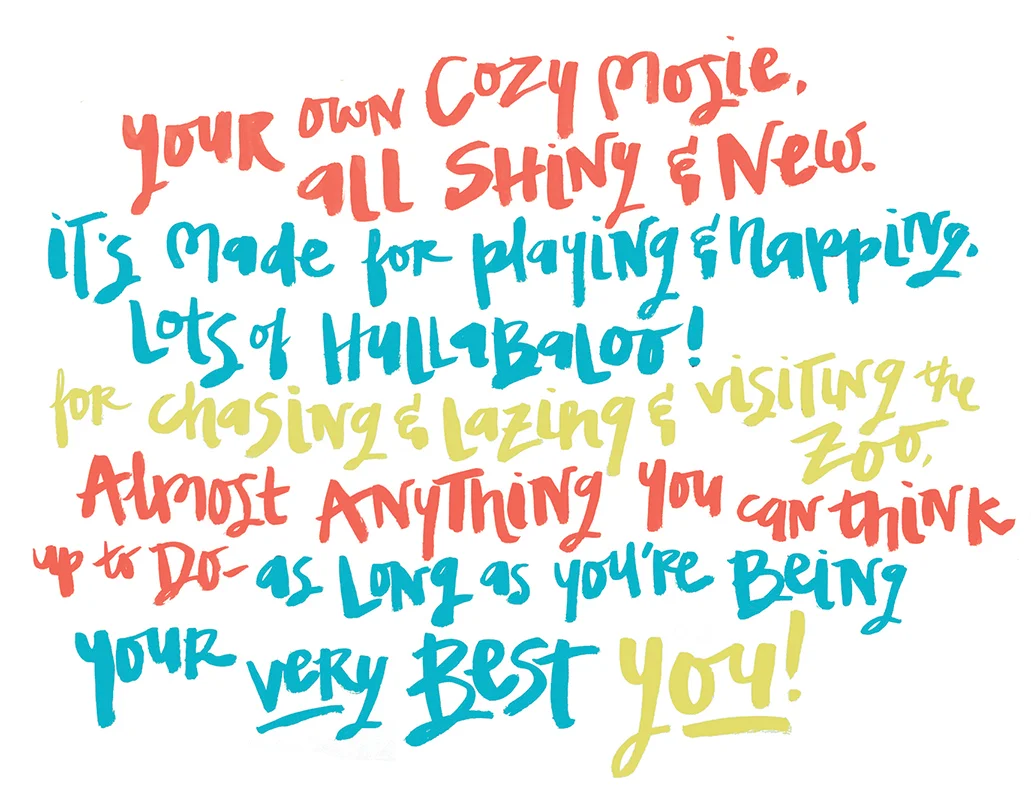 your own Cozy Mosie,
all SHiny & New.
it's made for playing & napping.
Lots of HullaBaLoo!
for chasing & Lazing & visiting the
Zoo,
Almost ANyTHiNg you can think
up to Do- as Long as you're Being
your very Best you!